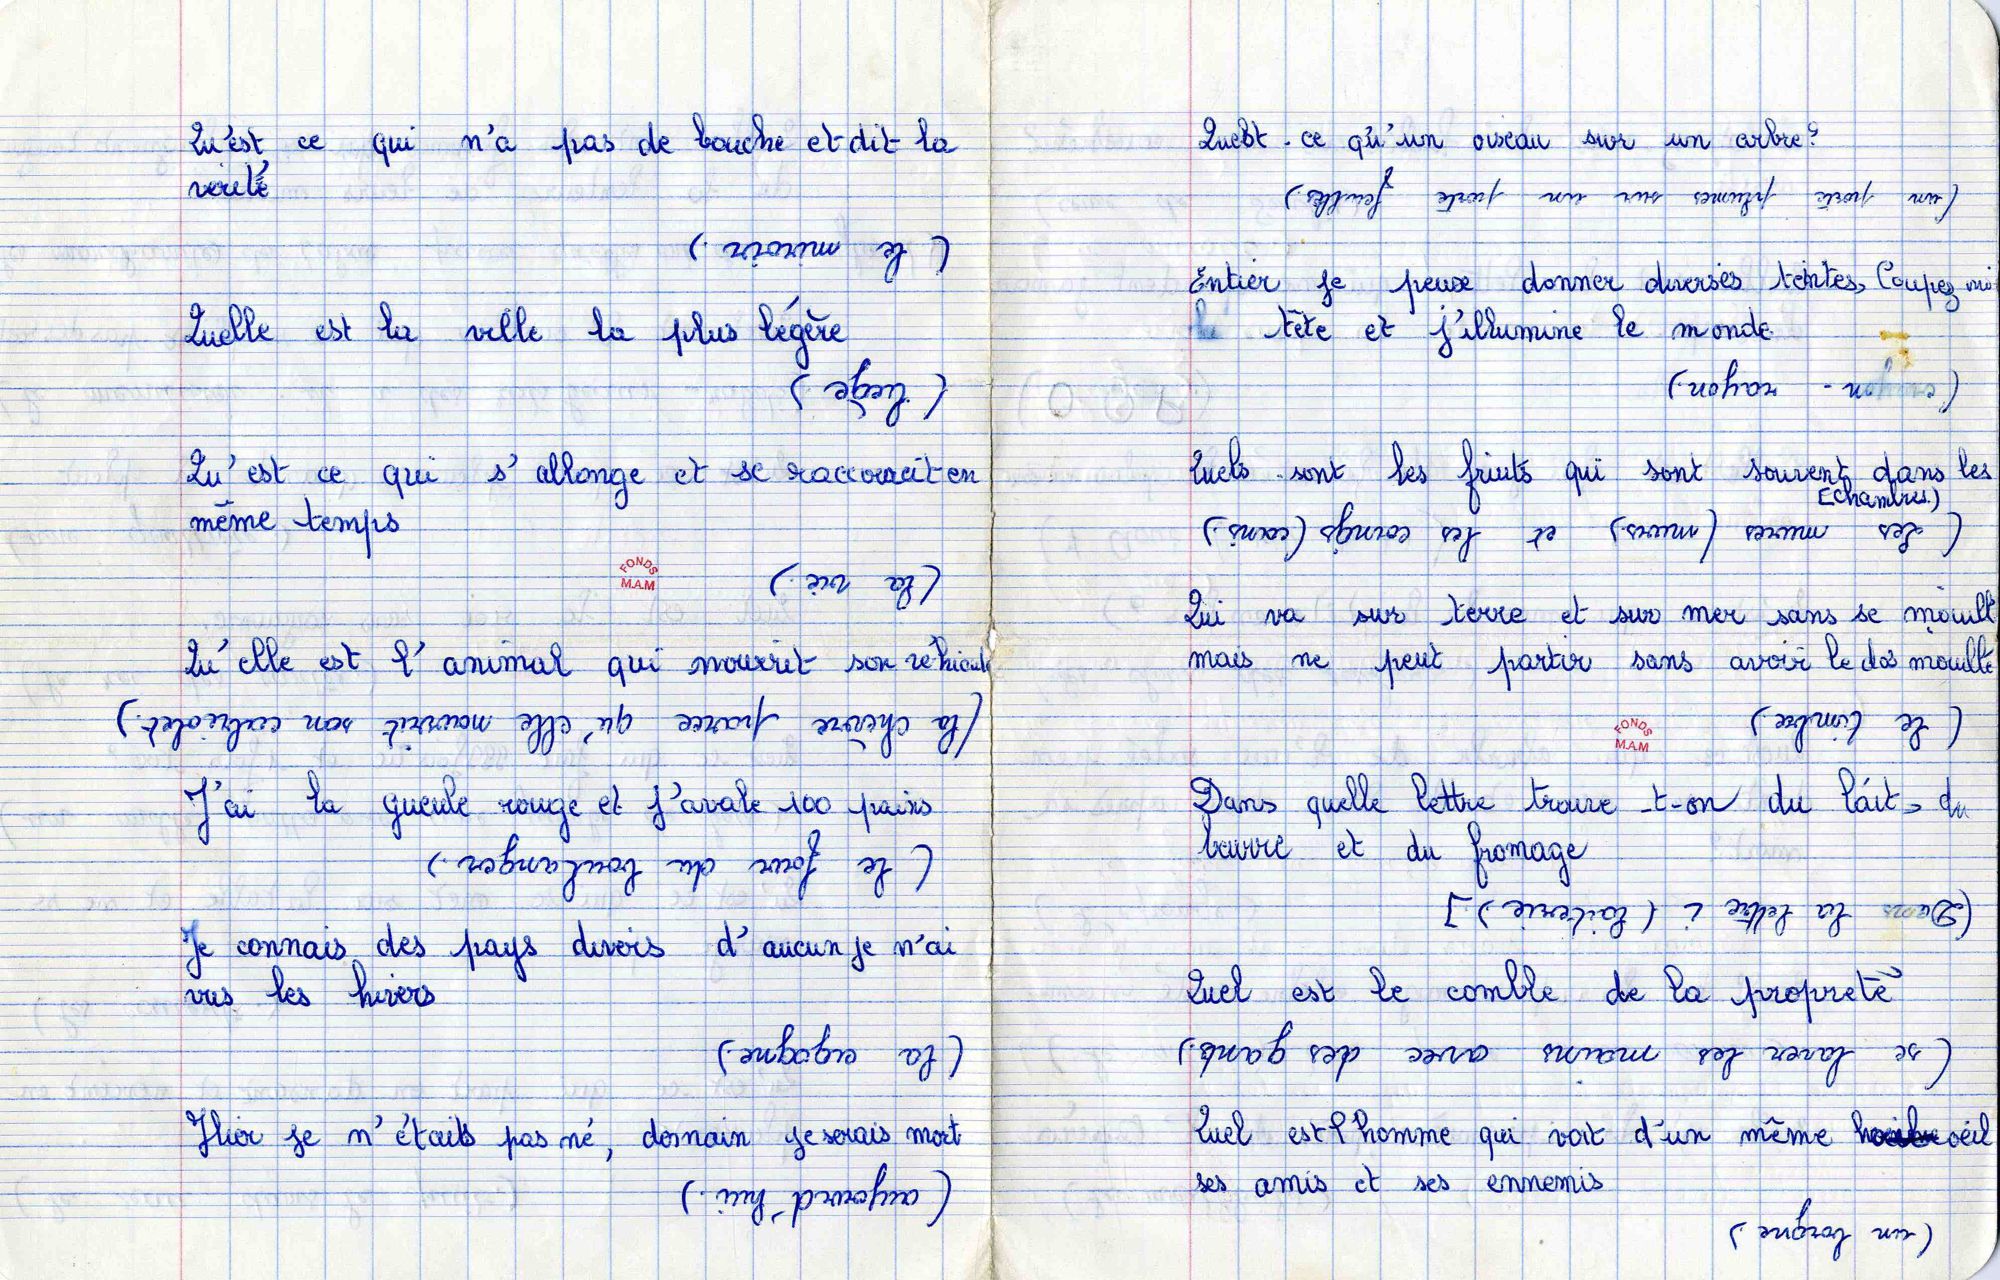 Qu'est ce qui n'a pas de bouche et dit la
verité
(le miroir.)
Quelle est la ville la plus légère
(liège)
Qu'est ce qui s'allonge et se raccourcit en
même temps
(la vie.)
FONDS
M.A.M
Qu'elle est l'animal qui nourrit son véhicule
(la chèvre parce qu'elle nourrit son cabriolet.)
J'ai la gueule rouge et j'avale 100 pains
(le four du boulanger.)
Je connais des pays divers d'aucun je n'ai
vus les hivers
(la cigogne.)
Hier je n'étais pas né, demain je serais mort
(aujourd'hui.)
Quest-ce qu'un oiseau sur un arbre?
(un porte plumes sur un porte feuilles.)
Entier je peux donner diverses teintes, Coupez moi
la tête et j'illumine le monde
(crayon - rayon.)
Quels sont les fruits qui sont souvent dans les
[chambres.)
(Les mures (murs.) et les coings (coins.)
Qui va sur terre et sur mer sans se mouill
mais ne peut partir sans avoir le dos mouillé
(le timbre.)
FONDS
M.A.M
Dans quelle lettre trouve-t-on du lait, du
beurre et du fromage
(Dans la lettre i (laiterie.)]
Quel est le comble de la propreté
(se laver les mains avec des gants.)
Quel est l'homme qui voit d'un même oeil
ses amis et ses ennemis
(un borgne.)